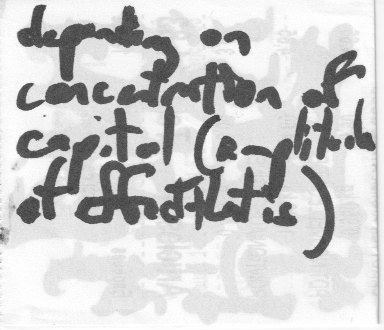 depending on
concentration of
capital (amplitude
of